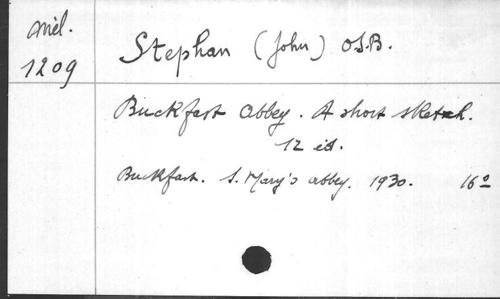 Mél.
1209
Stephan (John) O.S.B.
Buckfast Abbey. A short sketch.
12 ed.
Buckfast. S. Mary's abbey. 1930. 16º